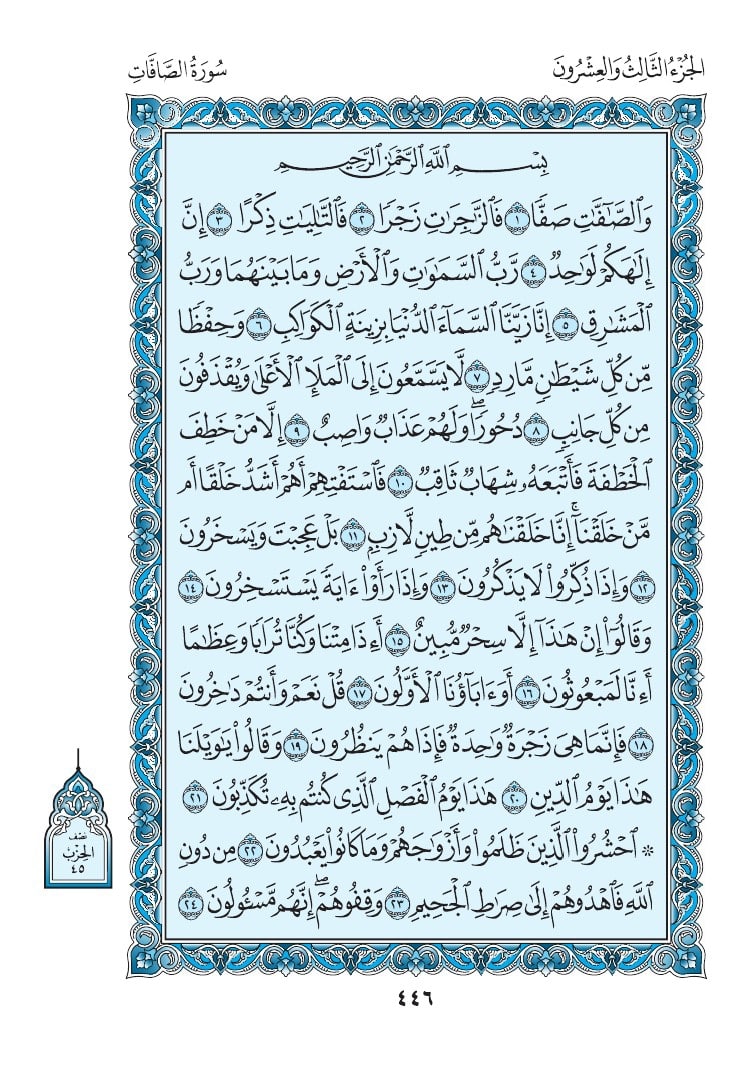 الجُزْءُ الثَّالِثُ وَالعِشْرُونَ
سُورَةُ الصَّافَّاتِ
بِسْمِ ٱللَّهِ ٱلرَّحْمَٰنِ ٱلرَّحِيمِ
وَٱلصَّٰٓفَّٰتِ صَفًّا ١ فَٱلزَّٰجِرَٰتِ زَجْرًا ٢ فَٱلتَّٰلِيَٰتِ ذِكْرًا ٣ إِنَّ
إِلَٰهَكُمْ لَوَٰحِدٌ ٤ رَّبُّ ٱلسَّمَٰوَٰتِ وَٱلْأَرْضِ وَمَا بَيْنَهُمَا وَرَبُّ
ٱلْمَشَٰرِقِ ٥ إِنَّا زَيَّنَّا ٱلسَّمَآءَ ٱلدُّنْيَا بِزِينَةٍ ٱلْكَوَاكِبِ ٦ وَحِفْظًا
مِّن كُلِّ شَيْطَٰنٍ مَّارِدٍ ٧ لَّا يَسَّمَّعُونَ إِلَى ٱلْمَلَإِ ٱلْأَعْلَىٰ وَيُقْذَفُونَ
مِن كُلِّ جَانِبٍ ٨ دُحُورًا ۖ وَلَهُمْ عَذَابٌ وَاصِبٌ ٩ إِلَّا مَنْ خَطِفَ
ٱلْخَطْفَةَ فَأَتْبَعَهُۥ شِهَابٌ ثَاقِبٌ ١٠ فَٱسْتَفْتِهِمْ أَهُمْ أَشَدُّ خَلْقًا أَم
مَّنْ خَلَقْنَآ ۚ إِنَّا خَلَقْنَٰهُم مِّن طِينٍ لَّازِبٍ ١١ بَلْ عَجِبْتَ وَيَسْخَرُونَ
١٢ وَإِذَا ذُكِّرُوا۟ لَا يَذْكُرُونَ ١٣ وَإِذَا رَأَوْا۟ ءَايَةً يَسْتَسْخِرُونَ ١٤
وَقَالُوٓا۟ إِنْ هَٰذَآ إِلَّا سِحْرٌ مُّبِينٌ ١٥ أَءِذَا مِتْنَا وَكُنَّا تُرَابًا وَعِظَٰمًا
أَءِنَّا لَمَبْعُوثُونَ ١٦ أَوَءَابَآؤُنَا ٱلْأَوَّلُونَ ١٧ قُلْ نَعَمْ وَأَنتُمْ دَٰخِرُونَ
١٨ فَإِنَّمَا هِىَ زَجْرَةٌ وَٰحِدَةٌ فَإِذَا هُمْ يَنظُرُونَ ١٩ وَقَالُوا۟ يَٰوَيْلَنَا
هَٰذَا يَوْمُ ٱلدِّينِ ٢٠ هَٰذَا يَوْمُ ٱلْفَصْلِ ٱلَّذِى كُنتُم بِهِۦ تُكَذِّبُونَ ٢١
* ٱحْشُرُوا۟ ٱلَّذِينَ ظَلَمُوا۟ وَأَزْوَٰجَهُمْ وَمَا كَانُوا۟ يَعْبُدُونَ ٢٢ مِن دُونِ
ٱللَّهِ فَٱهْدُوهُمْ إِلَىٰ صِرَٰطِ ٱلْجَحِيمِ ٢٣ وَقِفُوهُمْ ۖ إِنَّهُم مَّسْـُٔولُونَ ٢٤
نصف
الحزب
٤٥
٤٤٦